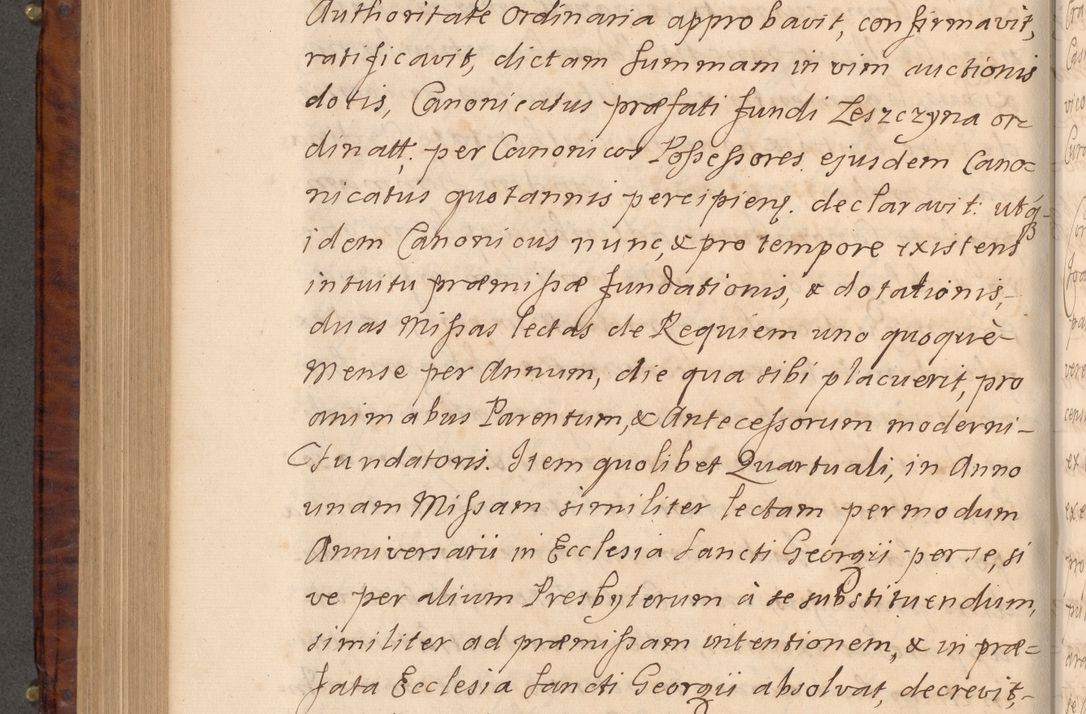 Authoritate Ordinaria approbavit, confirmavit,
ratificavit, dictam summam in vim auctionis
dotis, Canonicatus præfati fundi Leszczyna or-
dinatt. per Canonicos Possessores ejusdem Cano-
nicatus quotannis percipien. declaravit. utq
idem Canonicus nunc, & pro tempore existens
intuitu præmissæ fundationis, & dotationis,
duas Missas lectas de Requiem uno quoquè
Mense per Annum, die qua sibi placuerit, pro
animabus Parentum, & Antecessorum moderni
Fundatoris. Item quolibet Quartuali, in Anno
unam Missam similiter lectam per modum
Anniversarii in Ecclesia Sancti Georgii per se, si
ve per alium Presbyterum à se substituendum,
similiter ad præmissam intentionem, & in præ-
fata Ecclesia Sancti Georgii absolvat, decrevit,